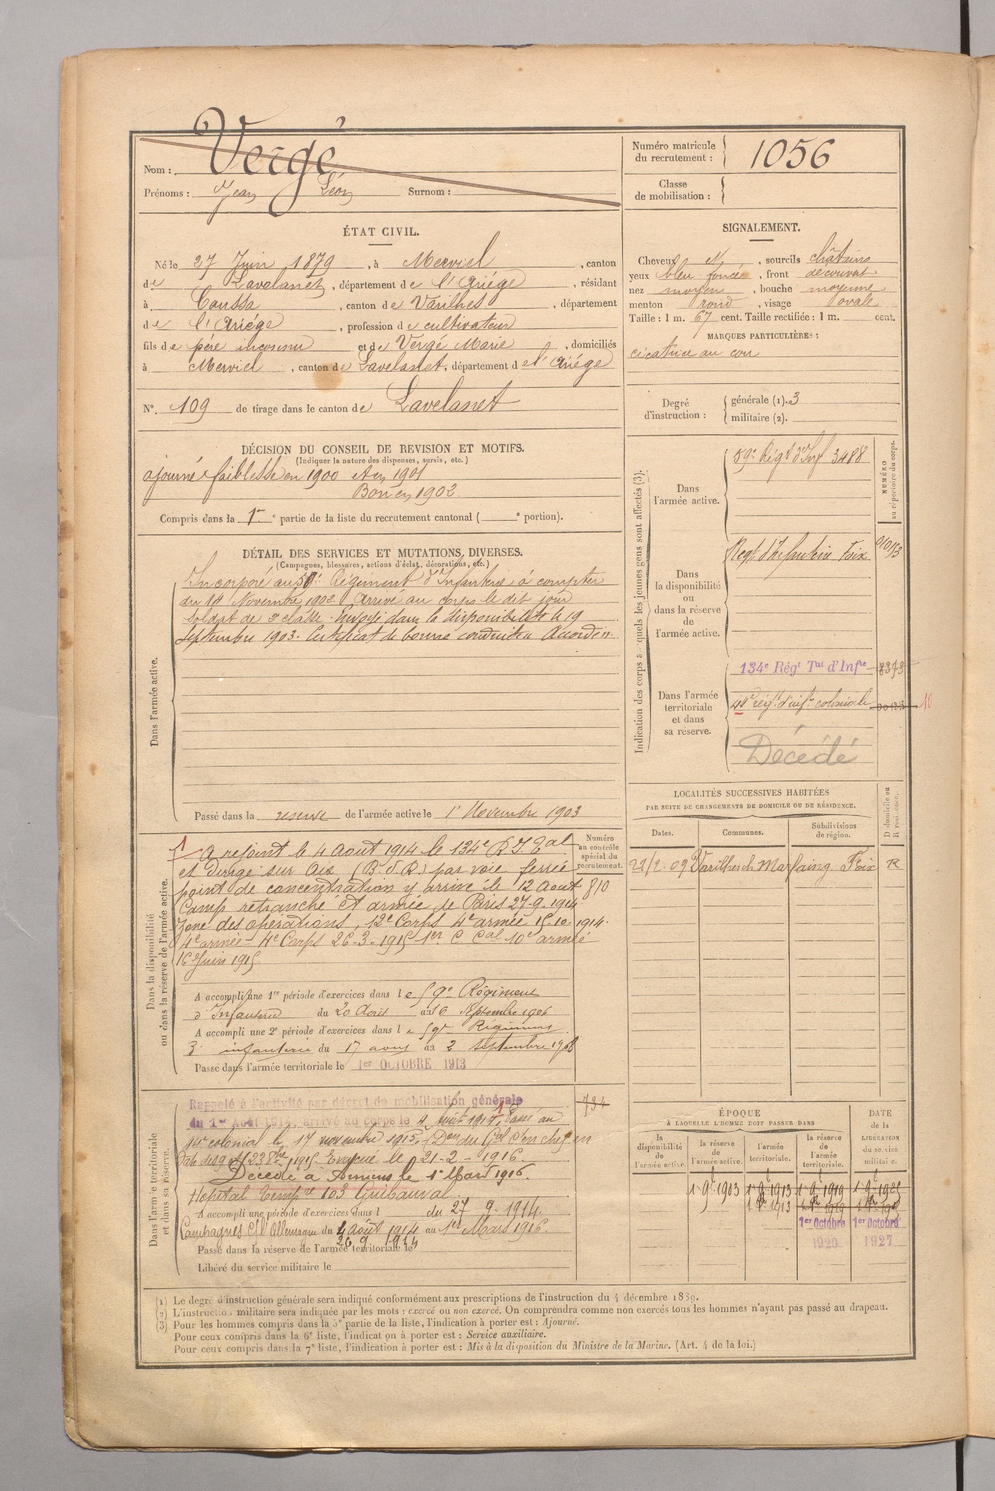 Nom : Vergé
Prénoms : Jean Léon Surnom :
Numéro matricule du recrutement : 1056
Classe de mobilisation :
ÉTAT CIVIL.
Né le 27 Juin 1879, à Merviel, canton
de Lavelanet, département de l'Ariége, résidant
à Coussa, canton de Varilhes, département
de l'Ariége, profession de cultivateur
fils de père inconnu et de Vergé Marie, domiciliés
à Merviel, canton de Lavelanet, département de l'Ariége
N° 109 de tirage dans le canton de Lavelanet
SIGNALEMENT.
Cheveux , sourcils châtains
yeux bleu foncé, front découvert
nez moyen, bouche moyenne
menton rond, visage ovale
Taille : 1 m. 67 cent. Taille rectifiée : 1 m. cent.
MARQUES PARTICULIÈRES :
cicatrice au cou
Degré d'instruction : générale (1). 3
militaire (2).
DÉCISION DU CONSEIL DE REVISION ET MOTIFS.
(Indiquer la nature des dispenses, sursis, etc.)
ajourné faiblesse en 1900 et en 1901
Bon en 1902
Compris dans la 1re partie de la liste du recrutement cantonal ( e portion).
DÉTAIL DES SERVICES ET MUTATIONS DIVERSES.
(Campagnes, blessures, actions d'éclat, décorations, etc.)
Dans l'armée active.
Incorporé au 59e Régiment d'Infanterie à compter
du 14 Novembre 1902. Arrivé au corps le dit jour
soldat de 2e classe. Envoyé dans la disponibilité le 19
Septembre 1903. Certificat de bonne conduite Accordé.
Passé dans la réserve de l'armée active le 1er Novembre 1903
Indication des corps auxquels les jeunes gens sont affectés (3).
NUMÉRO au répertoire du corps.
Dans l'armée active.
59e Régt d'Inf 3488
Dans la disponibilité ou dans la réserve de l'armée active.
Régt d'Infanterie Foix
Dans l'armée territoriale et dans sa réserve.
134e Régt Tal d'Infie
régt d'inf. coloniale
10
Décédé
LOCALITÉS SUCCESSIVES HABITÉES
PAR SUITE DE CHANGEMENTS DE DOMICILE OU DE RÉSIDENCE.
Dates. Communes. Subdivisions de région. D domicile ou R résidence.
21/2.09 Varilhes Foix R
Dans la disponibilité ou dans la réserve de l'armée active.
Numéro au contrôle spécial du recrutement.
810
A rejoint le 4 Août 1914 le 134e R I Tal
et dirigé sur Aix (B. d. R.) par voie ferrée
point de concentration y arrivé le 12 Aout
Camp retranché et armée de Paris 27-9-1914
Zone des opérations, 12e Corps 4e armée 15-10-1914.
4e armée - 4e Corps 26-3-1915 1er C Cal 10e armée
16 Juin 1915
A accompli une 1re période d'exercices dans le 59e Régiment
d'Infanterie du 20 Août au 16 Septembre 1906
A accompli une 2e période d'exercices dans le 59e Régiment
d'infanterie du 17 août au 2 septembre 1908
Passé dans l'armée territoriale le 1er OCTOBRE 1913
Dans l'armée territoriale et dans sa réserve.
734
Rappelé à l'activité par décret de mobilisation générale
du 1er Août 1914, arrivé au corps le 4 Août 1914. Passé au
colonial le 17 novembre 1915. (Don du Gal Cn chef en
1915 Evacué le 21-2-1916.
Décédé à Amiens le 1er Mars 1916
Hopital 103
A accompli une période d'exercices dans l du 27 9-1914
Campagnes C. l'Allemagne du 4 août 1914 au 1er Mars 1916
26 9 1914
Passé dans la réserve de l'armée territoriale le
Libéré du service militaire le
ÉPOQUE
À LAQUELLE L'HOMME DOIT PASSER DANS
la disponibilité de l'armée active. la réserve de l'armée active. l'armée territoriale. la réserve de l'armée territoriale. DATE de la LIBÉRATION du service militaire.
1 9bre 1903 1 9 1913 1 9 1919 1 9 1925
1er Octobre 1920 1er Octobre 1927
(1) Le degré d'instruction générale sera indiqué conformément aux prescriptions de l'instruction du 4 décembre 1889.
(2) L'instruction militaire sera indiquée par les mots : exercé ou non exercé. On comprendra comme non exercés tous les hommes n'ayant pas passé au drapeau.
(3) Pour les hommes compris dans la 5e partie de la liste, l'indication à porter est : Ajourné.
Pour ceux compris dans la 6e liste, l'indication à porter est : Service auxiliaire.
Pour ceux compris dans la 7e liste, l'indication à porter est : Mis à la disposition du Ministre de la Marine. (Art. 4 de la loi.)